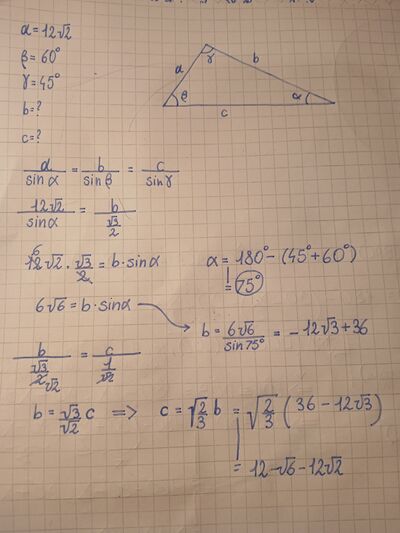 a = 12√2
β = 60°
γ = 45°
b = ?
c = ?
a γ b
β c α
a/sin α = b/sin β = c/sin γ
12√2/sin α = b/(√3/2)
6
12√2 · √3/2 = b · sin α
α = 180° - (45° + 60°)
= 75°
6√6 = b · sin α
b = 6√6/sin 75° = -12√3 + 36
b/(√3/2) √2 = c/(1/√2)
b = √3/√2 c => c = √(2/3) b = √(2/3) (36 - 12√3)
= 12√6 - 12√2